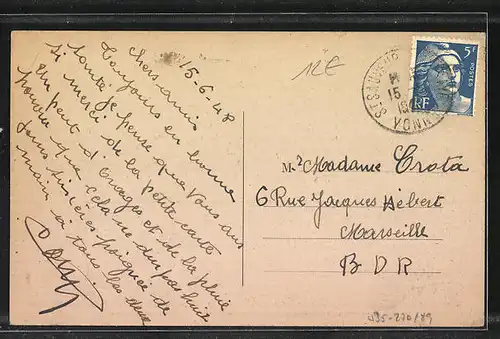 15-6-48
Chers amis
Toujours en bonne
santé je pense que vous aussi
si merci de la petite carte
un peut d'orages et de la pluie
pourvu que cela ne dur pas huit
jours sincères poignées de
main à tous les deux
12E
5F
POSTES
RF
15
YONNE
Mr & Madame Crota
6 Rue Jacques Hébert
Marseille
BDR
495-270/89